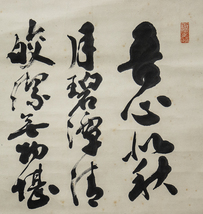 吾心似秋
月碧潭清
皎潔無物堪